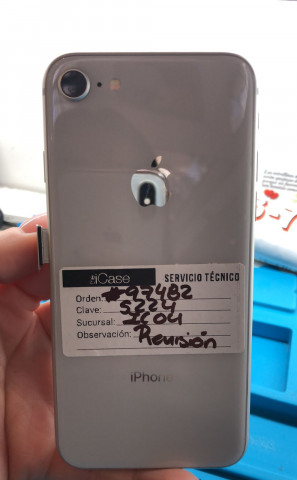 iCase SERVICIO TÉCNICO
Orden: #97482
Clave: 5224
Sucursal:
Observación: Revisión
iPhone